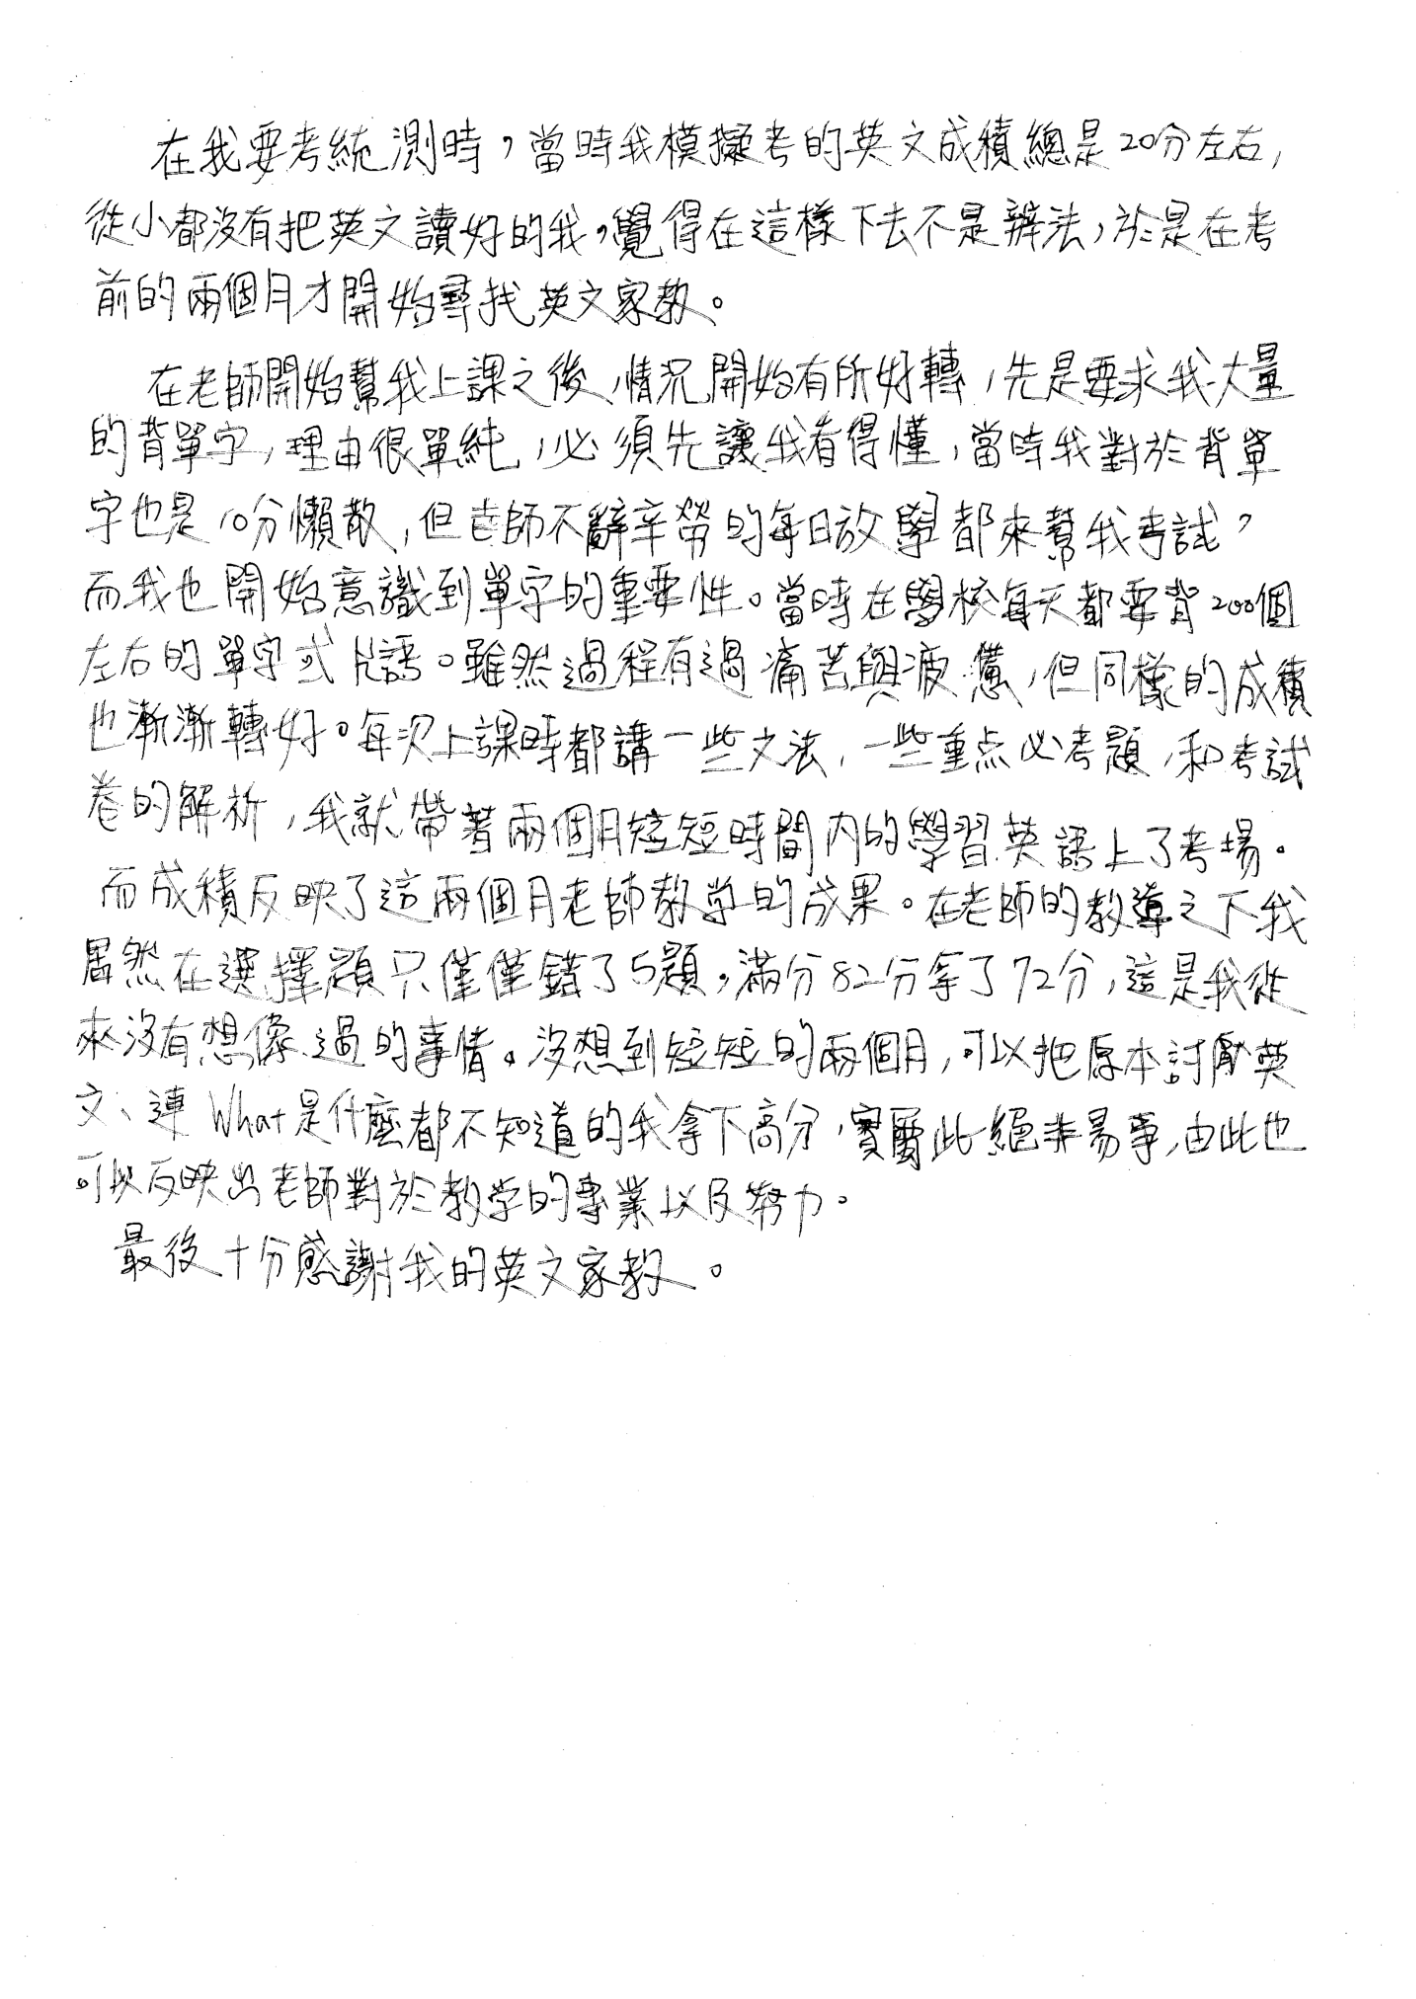 在我要考統測時，當時我模擬考的英文成積總是20分左右,
從小都沒有把英文讀好的我，覺得在這樣下去不是辦法，於是在考
前的兩個月才開始尋找英文家教。
在老師開始幫我上課之後,情況開始有所好轉,先是要求我大量
的背單字,理由很單純,必須先讓我看得懂,當時我對於背單
字也是10分懶散,但老師不辭辛勞的每日放學都來幫我考試，
而我也開始意識到單字的重要性。當時在學校每天都要背200個
左右的單字或片語。雖然過程有過痛苦與疲憊,但同樣的成積
也漸漸轉好。每次上課時都講一些文法,一些重点必考題,和考試
卷的解析,我就帶著兩個月短短時間內的學習英語上了考場。
而成積反映了這兩個月老師教学的成果。在老師的教導之下我
居然在選擇題只僅僅錯了5題，滿分82分拿了72分,這是我從
來沒有想像過的事情。沒想到短短的兩個月,可以把原本討厭英
文、連What是什麼都不知道的我拿下高分,實屬此絕非易事,由此也
可以反映出老師對於教学的專業以及努力。
最後十分感謝我的英文家教。